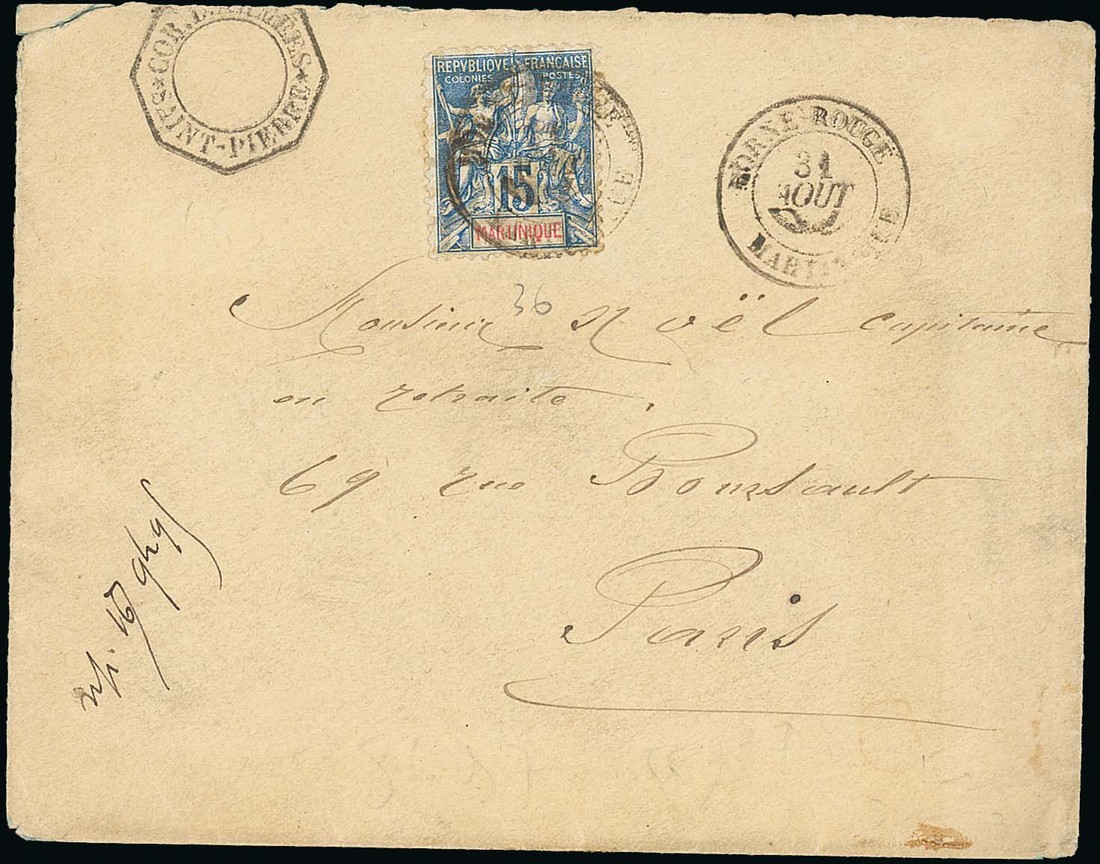 COR. D. ARMEES
SAINT-PIERRE
REPVBLIQVE FRANÇAISE
COLONIES POSTES
15
MARTINIQUE
MORNE ROUGE
31
AOUT
MARTINIQUE
36
Monsieur Noël capitaine
en retraite.
69 rue Boursault
Paris